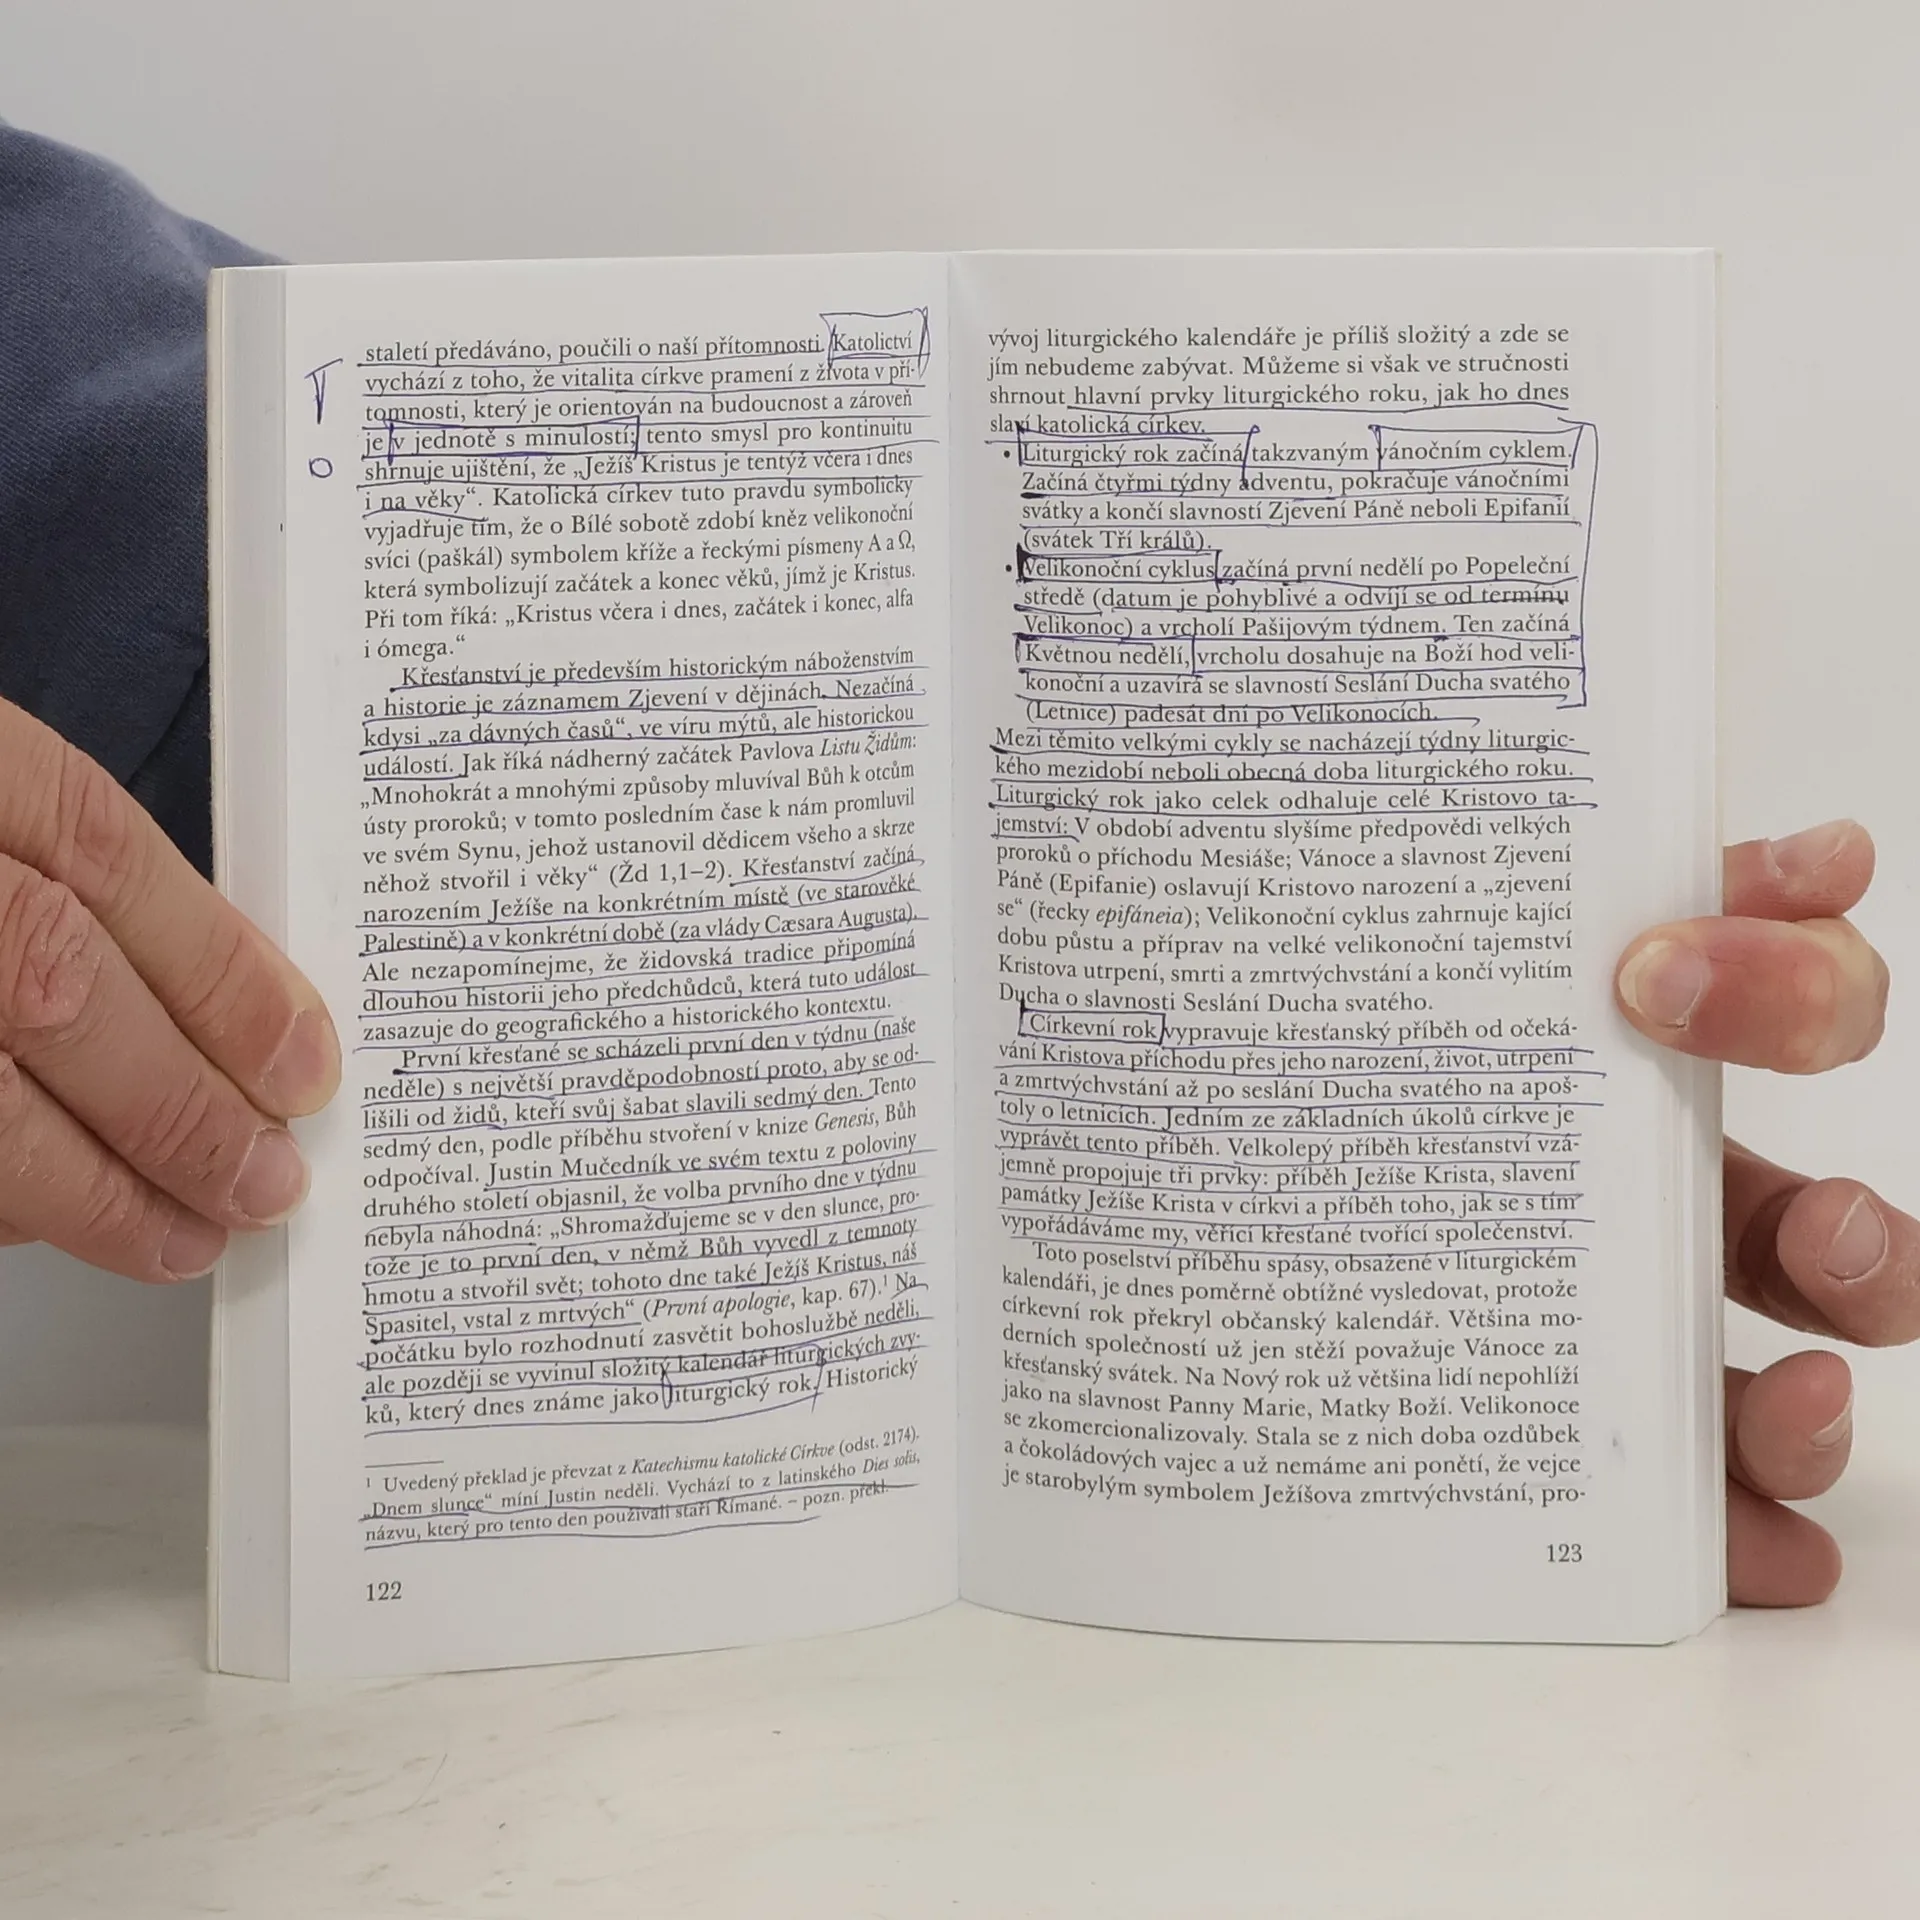 staletí předáváno, poučili o naší přítomnosti. Katolictví
vychází z toho, že vitalita církve pramení z života v pří-
tomnosti, který je orientován na budoucnost a zároveň
je v jednotě s minulostí; tento smysl pro kontinuitu
shrnuje ujištění, že „Ježíš Kristus je tentýž včera i dnes
i na věky“. Katolická církev tuto pravdu symbolicky
vyjadřuje tím, že o Bílé sobotě zdobí kněz velikonoční
svíci (paškál) symbolem kříže a řeckými písmeny A a Ω,
která symbolizují začátek a konec věků, jímž je Kristus.
Při tom říká: „Kristus včera i dnes, začátek i konec, alfa
i ómega.“
Křesťanství je především historickým náboženstvím
a historie je záznamem Zjevení v dějinách. Nezačíná
kdysi „za dávných časů“, ve víru mýtů, ale historickou
událostí. Jak říká nádherný začátek Pavlova Listu Židům:
„Mnohokrát a mnohými způsoby mluvíval Bůh k otcům
ústy proroků; v tomto posledním čase k nám promluvil
ve svém Synu, jehož ustanovil dědicem všeho a skrze
něhož stvořil i věky“ (Žd 1,1–2). Křesťanství začíná
narozením Ježíše na konkrétním místě (ve starověké
Palestině) a v konkrétní době (za vlády Cæsara Augusta).
Ale nezapomínejme, že židovská tradice připomíná
dlouhou historii jeho předchůdců, která tuto událost
zasazuje do geografického a historického kontextu.
První křesťané se scházeli první den v týdnu (naše
neděle) s největší pravděpodobností proto, aby se od-
lišili od židů, kteří svůj šabat slavili sedmý den. Tento
sedmý den, podle příběhu stvoření v knize Genesis, Bůh
odpočíval. Justin Mučedník ve svém textu z poloviny
druhého století objasnil, že volba prvního dne v týdnu
nebyla náhodná: „Shromažďujeme se v den slunce, pro-
tože je to první den, v němž Bůh vyvedl z temnoty
hmotu a stvořil svět; tohoto dne také Ježíš Kristus, náš
Spasitel, vstal z mrtvých“ (První apologie, kap. 67).¹ Na
počátku bylo rozhodnutí zasvětit bohoslužbě neděli,
ale později se vyvinul složitý kalendář liturgických zvy-
ků, který dnes známe jako liturgický rok. Historický
¹ Uvedený překlad je převzat z Katechismu katolické Církve (odst. 2174).
„Dnem slunce“ míní Justin neděli. Vychází to z latinského Dies solis,
názvu, který pro tento den používali staří Římané. – pozn. překl.
122
vývoj liturgického kalendáře je příliš složitý a zde se
jím nebudeme zabývat. Můžeme si však ve stručnosti
shrnout hlavní prvky liturgického roku, jak ho dnes
slaví katolická církev.
• Liturgický rok začíná takzvaným vánočním cyklem.
Začíná čtyřmi týdny adventu, pokračuje vánočními
svátky a končí slavností Zjevení Páně neboli Epifanií
(svátek Tří králů).
• Velikonoční cyklus začíná první nedělí po Popeleční
středě (datum je pohyblivé a odvíjí se od termínu
Velikonoc) a vrcholí Pašijovým týdnem. Ten začíná
Květnou nedělí, vrcholu dosahuje na Boží hod veli-
konoční a uzavírá se slavností Seslání Ducha svatého
(Letnice) padesát dní po Velikonocích.
Mezi těmito velkými cykly se nacházejí týdny liturgic-
kého mezidobí neboli obecná doba liturgického roku.
Liturgický rok jako celek odhaluje celé Kristovo ta-
jemství: V období adventu slyšíme předpovědi velkých
proroků o příchodu Mesiáše; Vánoce a slavnost Zjevení
Páně (Epifanie) oslavují Kristovo narození a „zjevení
se“ (řecky epifáneia); Velikonoční cyklus zahrnuje kající
dobu půstu a příprav na velké velikonoční tajemství
Kristova utrpení, smrti a zmrtvýchvstání a končí vylitím
Ducha o slavnosti Seslání Ducha svatého.
Církevní rok vypravuje křesťanský příběh od očeká-
vání Kristova příchodu přes jeho narození, život, utrpení
a zmrtvýchvstání až po seslání Ducha svatého na apoš-
toly o letnicích. Jedním ze základních úkolů církve je
vyprávět tento příběh. Velkolepý příběh křesťanství vzá-
jemně propojuje tři prvky: příběh Ježíše Krista, slavení
památky Ježíše Krista v církvi a příběh toho, jak se s tím
vypořádáváme my, věřící křesťané tvořící společenství.
Toto poselství příběhu spásy, obsažené v liturgickém
kalendáři, je dnes poměrně obtížné vysledovat, protože
církevní rok překryl občanský kalendář. Většina mo-
derních společností už jen stěží považuje Vánoce za
křesťanský svátek. Na Nový rok už většina lidí nepohlíží
jako na slavnost Panny Marie, Matky Boží. Velikonoce
se zkomercionalizovaly. Stala se z nich doba ozdůbek
a čokoládových vajec a už nemáme ani ponětí, že vejce
je starobylým symbolem Ježíšova zmrtvýchvstání, pro-
123